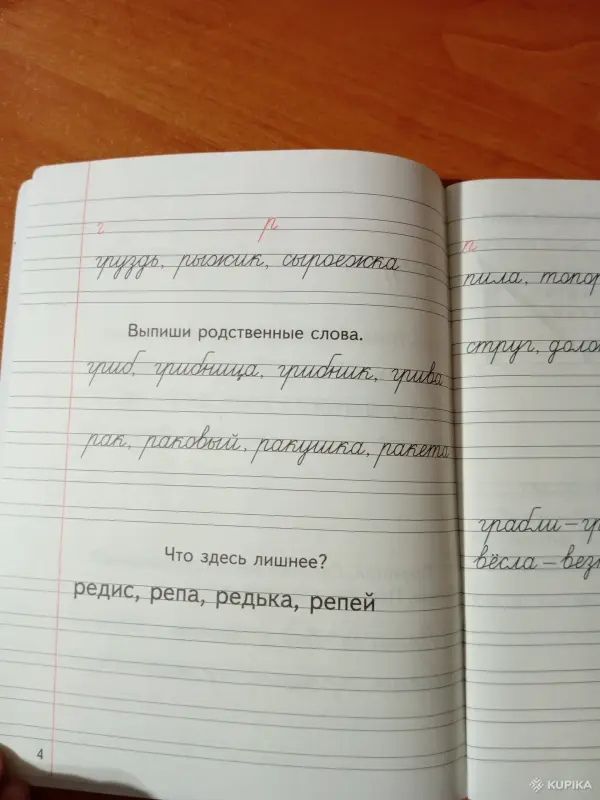 г р
груздь, рыжик, сыроежка
Выпиши родственные слова.
гриб, грибница, грибник, грива
рак, раковый, ракушка, ракета
Что здесь лишнее?
редис, репа, редька, репей
4
п
пила, топор
струг, доло
грабли – гр
вёсла – вез
KUPIKA